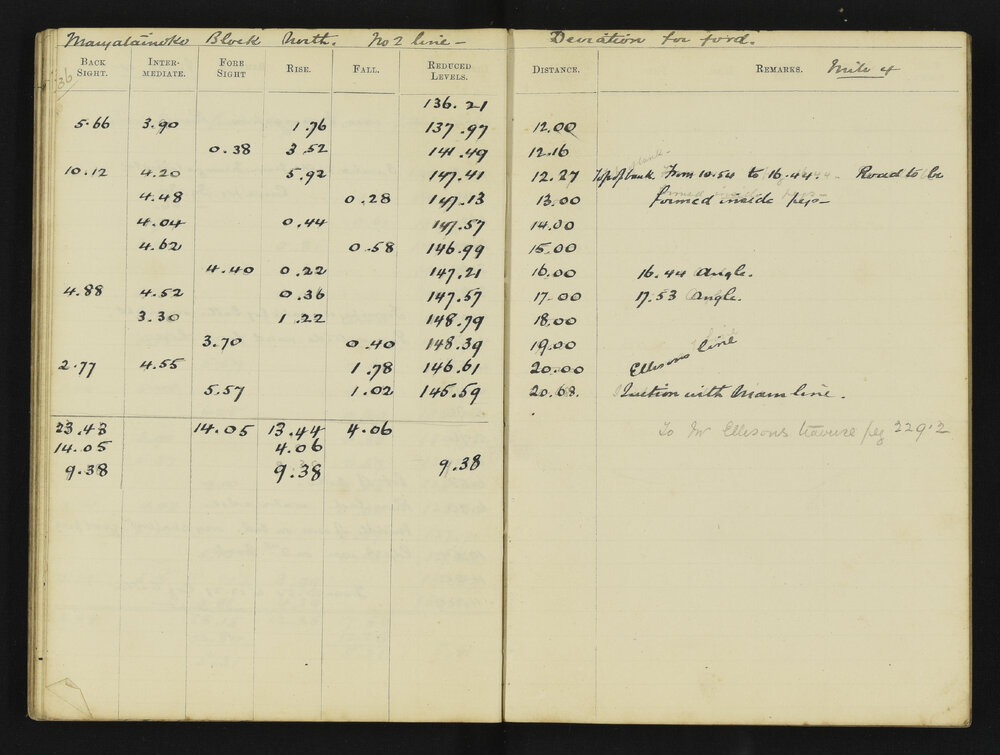 Mangatainoko Block North. No 2 line - Deviation for ford.
136
BACK SIGHT. INTER-MEDIATE. FORE SIGHT RISE. FALL. REDUCED LEVELS. DISTANCE. REMARKS. Mile 4
136.21
5.66 3.90 1.76 137.97 12.00
0.38 3.52 141.49 12.16
10.12 4.20 5.92 147.41 12.27 Top of bank From 10.54 to 16.44. Road to be
4.48 0.28 147.13 13.00 formed inside pegs-
4.04 0.44 147.57 14.00
4.62 0.58 146.99 15.00
4.40 0.22 147.21 16.00 16.44 Angle.
4.88 4.52 0.36 147.57 17.00 17.53 Angle.
3.30 1.22 148.79 18.00
3.70 0.40 148.39 19.00 Ellisons line
2.77 4.55 1.78 146.61 20.00
5.57 1.02 145.59 20.68. Juction with Main line.
23.43 14.05 13.44 4.06 To Mr Ellisons traverse peg 229.2
14.05 4.06
9.38 9.38 9.38